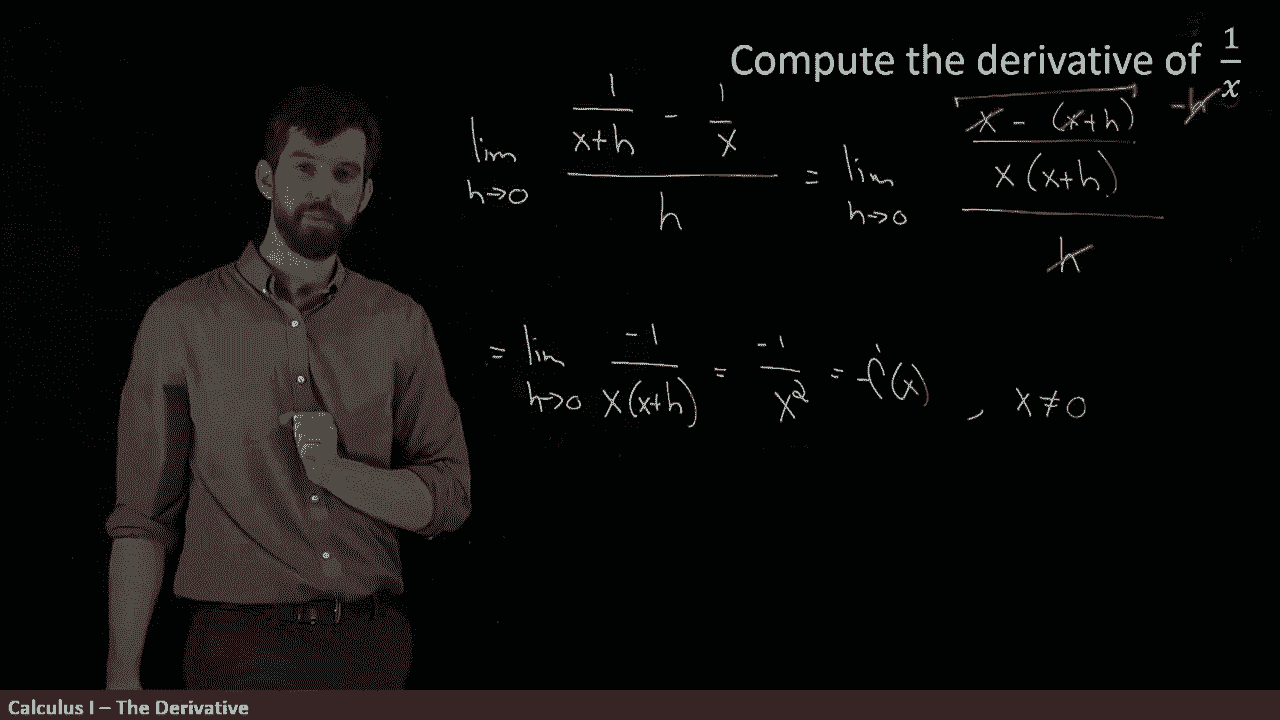 Compute the derivative of 1/x
lim h→0 (1/(x+h) - 1/x)/h = lim h→0 ((x - (x+h))/(x(x+h)))/h -h
= lim h→0 -1/(x(x+h)) = -1/x² = f'(x) , x≠0
Calculus I – The Derivative